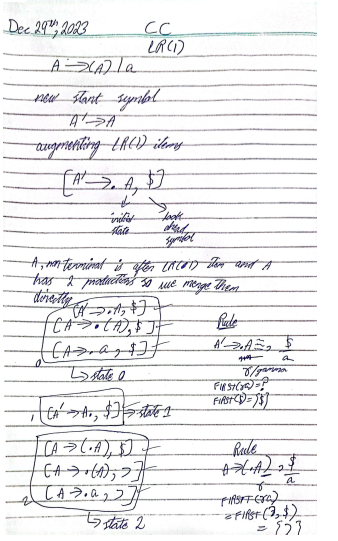 Dec 29th, 2023 CC
LR(1)
A → (A) | a
new start symbol
A' → A
augmenting LR(1) items
[A' → . A, $]
initial state
look ahead symbol
A, non terminal is after LR(1) item and A
has 2 productions so we merge them
directly
[A' → . A, $]
[A → . (A), $]
[A → . a, $]
0
↳ state 0
Rule
A' → . A Ξ, $
γ/gamma a
FIRST(γa) = ?
FIRST($) = {$}
1 [A' → A., $] → state 1
[A → (. A), $]
[A → . (A), )]
[A → . a, )]
2
↳ state 2
Rule
A → (. A), $
γ a
FIRST(γa)
= FIRST(), $)
= { ) }